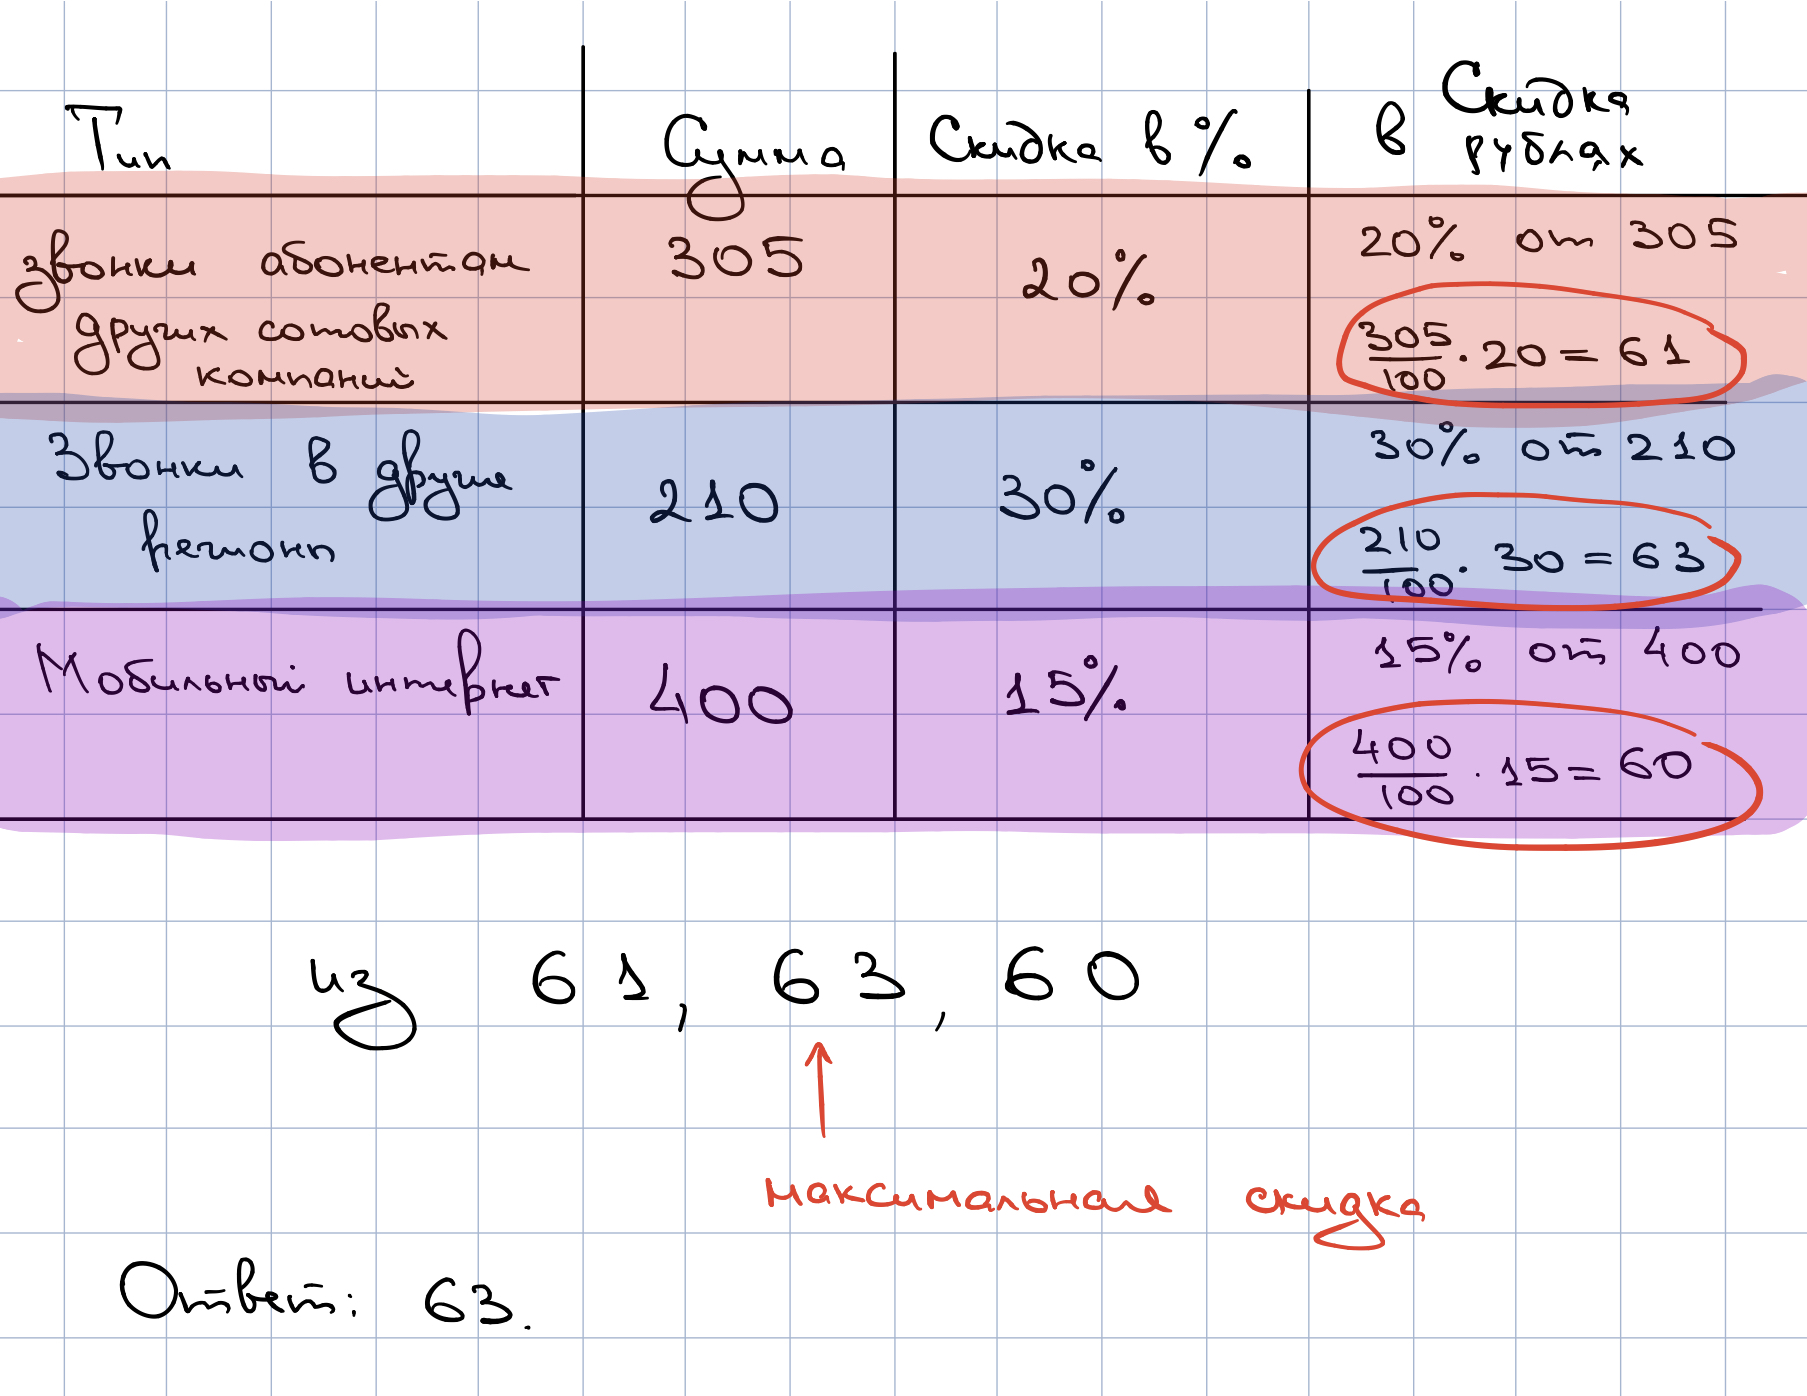 Тип Сумма Скидка в % Скидка
в рублях
звонки абонентам
других сотовых
компаний
305
20%
20% от 305
305/100 · 20 = 61
Звонки в другие
регионы
210
30%
30% от 210
210/100 · 30 = 63
Мобильный интернет
400
15%
15% от 400
400/100 · 15 = 60
из 61, 63, 60
максимальная скидка
Ответ: 63.